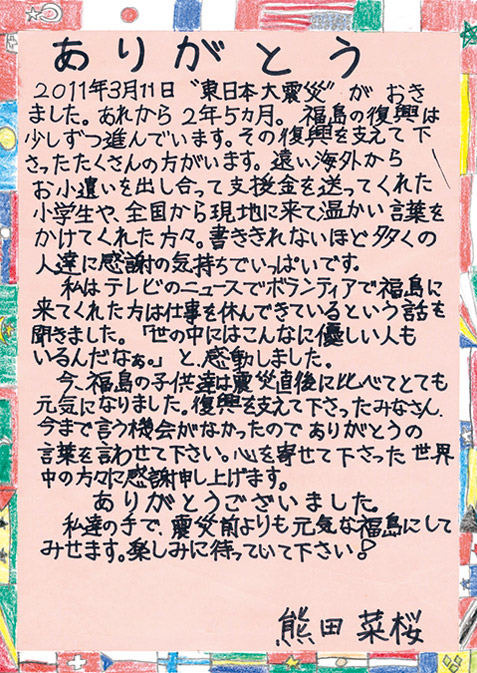 ありがとう
2011年3月11日〝東日本大震災〟が おき
ました。あれから 2年5ヵ月。 福島の復興は
少しずつ進んでいます。その復興を支えて下
さったたくさんの方がいます。遠い海外から
お小遣いを出し合って支援金を送ってくれた
小学生や、全国から現地に来て温かい言葉を
かけてくれた方々。書ききれないほど多くの
人達に感謝の気持ちでいっぱいです。
私はテレビのニュースでボランティアで福島に
来てくれた方は仕事を休んできているという話を
聞きました。「世の中にはこんなに優しい人も
いるんだなぁ。」と、感動しました。
今、福島の子供達は震災直後に比べてとても
元気になりました。復興を支えて下さったみなさん、
今まで言う機会がなかったので ありがとうの
言葉を言わせて下さい。心を寄せて下さった世界
中の方々に感謝申し上げます。
ありがとうございました。
私達の手で、震災前よりも元気な福島にして
みせます。楽しみに待っていて下さい!
熊田 菜桜